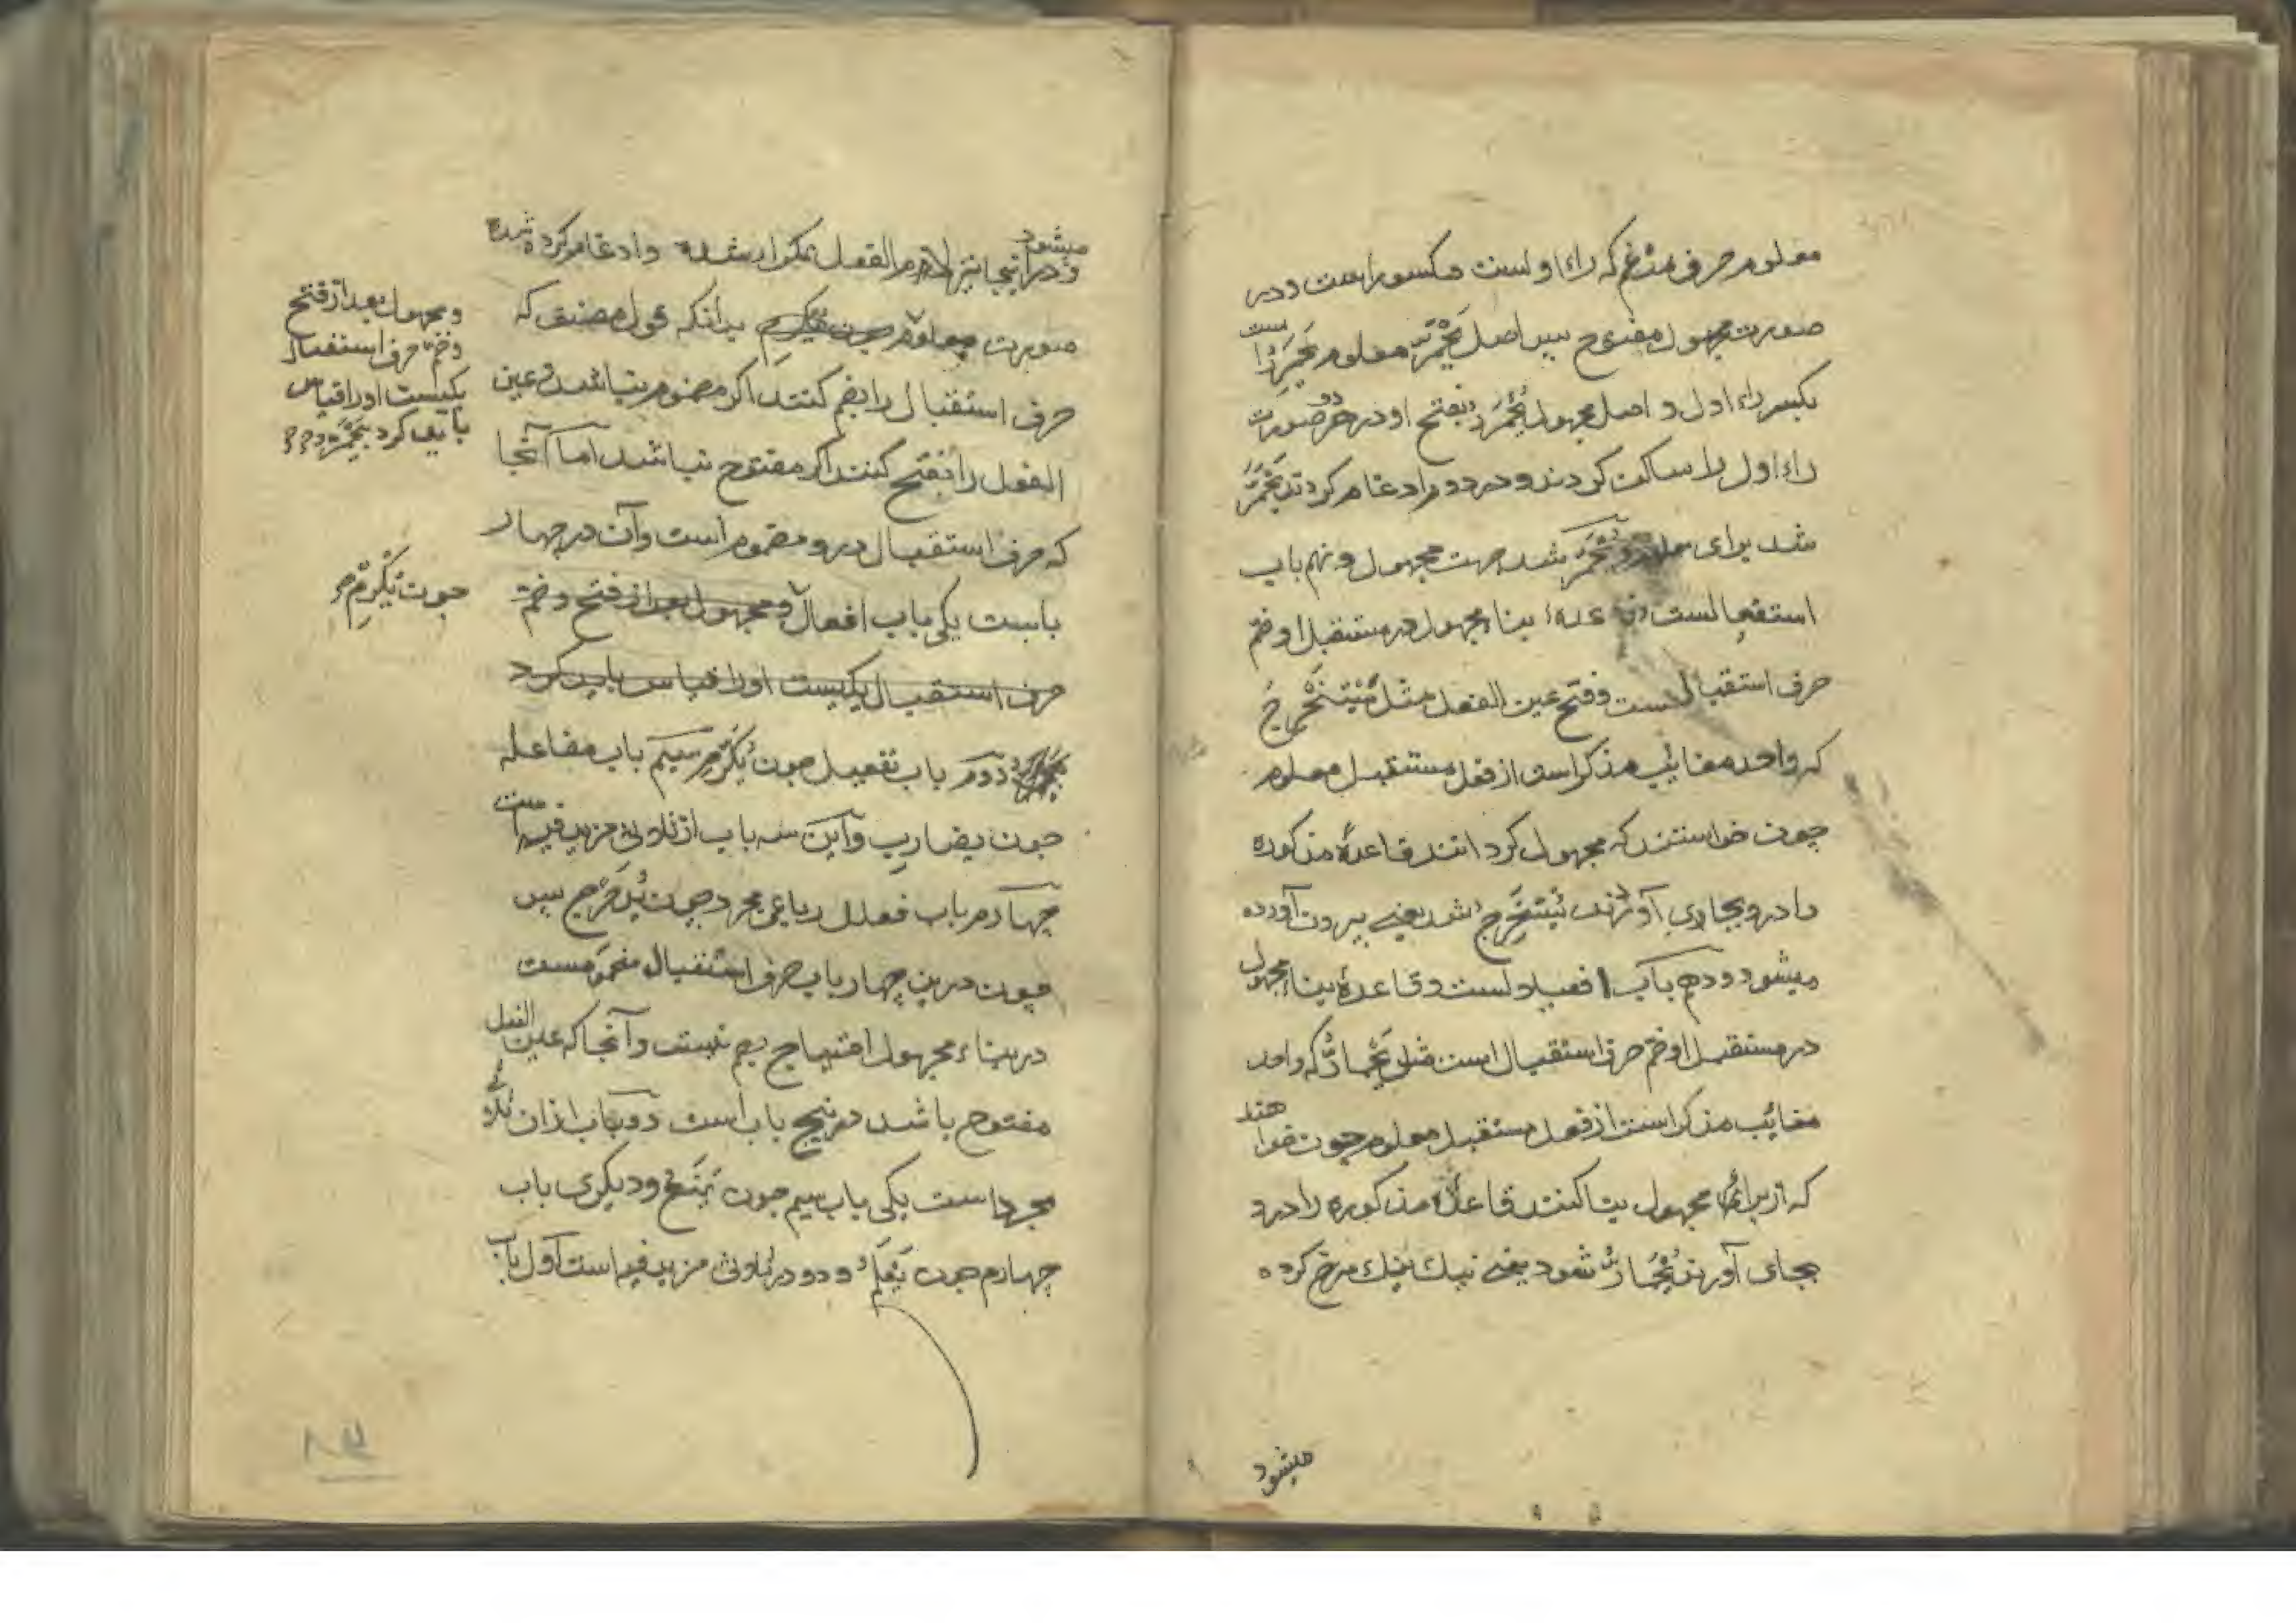 معلوم حرف مدغم که راء اولست مکسور است و در
صورت مجهول مفتوح پس اصل یحمر معلوم یحمرر است
بکسر راء اول و اصل مجهول یحمرر بفتح او در هر دو صورت
راء اول را ساکن کردند و در دوم ادغام کردند یحمر
شد برای معلوم و یحمر شد جهت مجهول و نهم باب
استفعالست و قاعدهٔ بناء مجهول در مستقبل او ضم
حرف استقبالست و فتح عین الفعل مثل یستخرج
که واحد مغایب مذکر است از فعل مستقبل معلوم
چون خواستند که مجهول کردانند قاعدهٔ مذکوره
را درو بجای آورند یستخرج شد یعنی بیرون آورده
میشود و دهم باب افعیلالست و قاعدهٔ بناء مجهول
در مستقبل او ضم حرف استقبال است مثل یحمار که واحد
مغایب مذکر است از فعل مستقبل معلوم چون خواهند
که از برای مجهول بنا کنند قاعدهٔ مذکوره را درو
بجای آورند یحمار شود یعنی نیک نیک سرخ کرده
میشود
میشود
و در اینجا نیز لام الفعل مکرر شده و ادغام کرده شده
صورت معلوم بدانکه قول مصنف که
حرف استقبال را بضم کنند اکر مضموم نباشد و عین
الفعل را بفتح کنند اکر مفتوح نباشد اما آنجا
که حرف استقبال درو مضموم است و آن در چهار
بابست یکی باب افعال و مجهول بعد از فتح و ضم
حرف استقبال یکیست او را قیاس باید کرد
دوم باب تفعیل چون یکرم سیم باب مفاعله
چون یضارب و این سه باب از ثلاثی مزید فیه است
چهارم باب فعلل رباعی مجرد چون یدحرج پس
چون درین چهار باب حرف استقبال مضمومست
در بناء مجهول احتیاج بضم نیست و آنجا که عین الفعل
مفتوح باشد در پنج باب است دو باب ازان ثلاثی
مجرد است یکی باب سیم چون یمنع و دیکری باب
چهارم چون یعلم و دو در ثلاثی مزید فیه است اول باب
و مجهول بعد از فتح
و ضم حرف استقبال
یکیست او را قیاس
باید کرد
چون یکرم